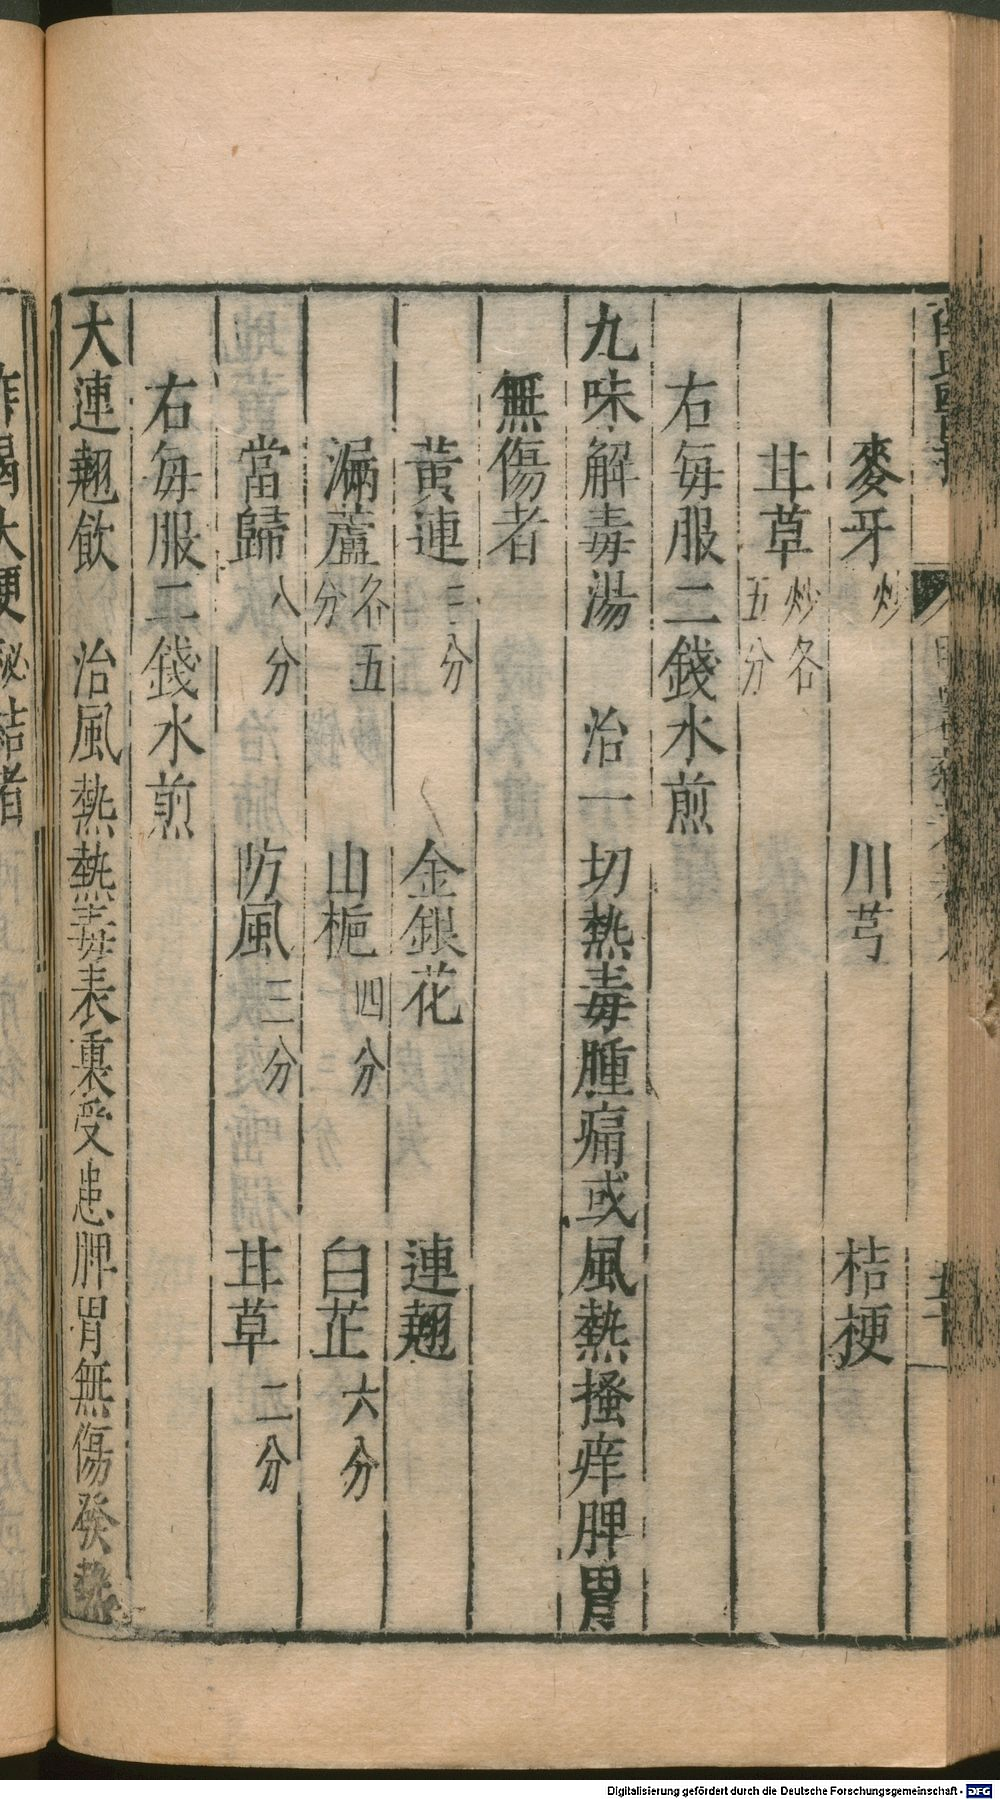 麥牙炒　川芎　桔梗
甘草炒各五分
右每服二錢水煎
九味解毒湯　治一切熱毒腫痛或風熱搔痒脾胃
無傷者
黃連三分　金銀花　連翹
漏蘆各五分　山梔四分　白芷六分
當歸八分　防風三分　甘草二分
右每服二錢水煎
大連翹飲　治風熱熱毒表裏受患脾胃無傷發熱
大便秘結者
Digitalisierung gefördert durch die Deutsche Forschungsgemeinschaft - DFG